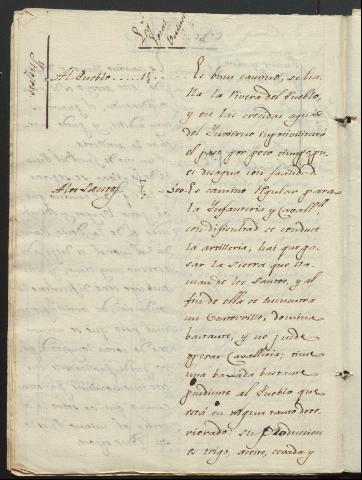 Al Pueblo ..... 1½
Es buen camino, se ha-
lla la Rivera del Pueblo,
y en las crecidas aguas
del Invierno imposivilitará
el paso por poco tiempo, pues
desagua con facilidad
A los Santos
Es camino regular para
la Infanteria y Cavallª
con dificultad se conduce
la artilleria; hai que pa-
sar la Sierra que lla-
man de los Santos, y al
fin de ella se encuentra
un Cerrerillo, domina
bastante, y no puede
operar Cavalleria; tiene
una baxada bastante
pendiente al Pueblo que
está en algun tanto dete-
riorado: su Produccion
es trigo, aceite, cevada y